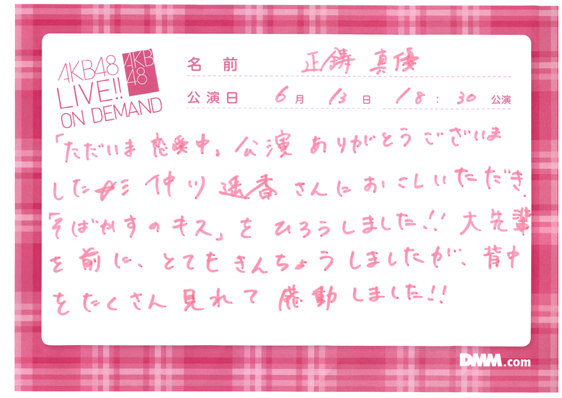 AKB48
LIVE!!
ON DEMAND
AKB
48
名前 正鋳 真優
公演日 6月 13日 18:30 公演
「ただいま 恋愛中」公演 ありがとうございま
した 仲川遥香 さんにおこしいただき、
「そばかすのキス」を ひろうしました!! 大先輩
を 前に、とてもきんちょうしましたが、背中
をたくさん 見れて 感動しました!!
DMM.com